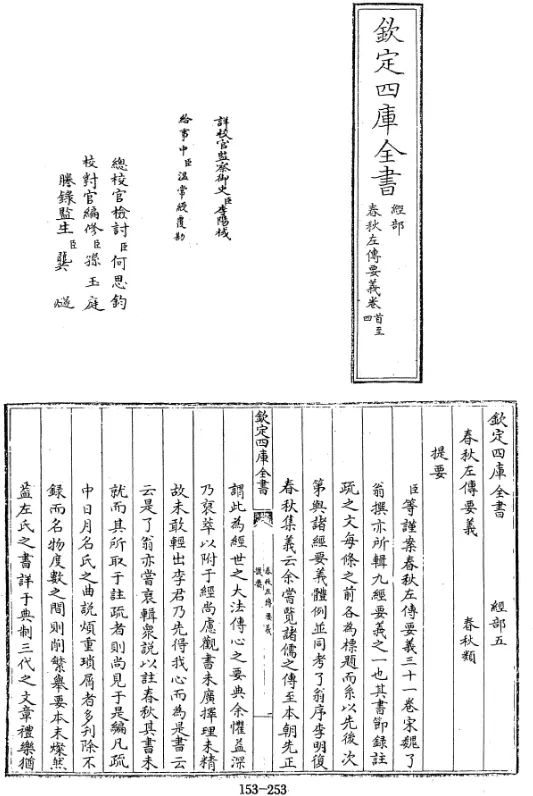 欽定四庫全書
經部
春秋左傳要義卷首至四
詳校官監察御史臣李陽棫
給事中臣温常綬覆勘
總校官檢討臣何思鈞
校對官編修臣孫玉庭
謄錄監生臣龔
欽定四庫全書 經部五
春秋左傳要義 春秋類
提要
臣等謹案春秋左傳要義三十一卷宋魏了
翁撰亦所輯九經要義之一也其書節録註
疏之文每條之前各為標題而系以先後次
第與諸經要義體例並同考了翁序李明復
春秋集義云余嘗覧諸儒之傳至本朝先正
欽定四庫全書
春秋左傳要義
提要
謂此為經世之大法傳心之要典余懼益深
乃裒萃以附于經尚慮觀書未廣擇理未精
故未敢輕出李君乃先得我心而為是書云
云是了翁亦嘗裒輯衆説以註春秋其書未
就而其所取于註疏者則尚見于是編凡疏
中日月名氏之曲説煩重瑣屑者多刋除不
録而名物度數之間則削繁舉要本末燦然
葢左氏之書詳于典制三代之文章禮樂猶
153-253